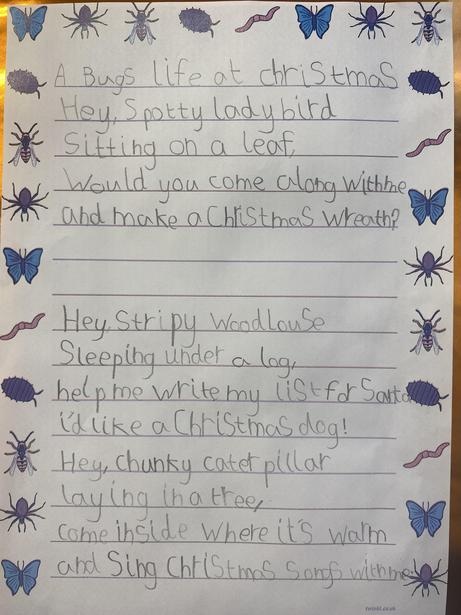 A Bugs life at christmas
Hey, Spotty ladybird
Sitting on a leaf,
Would you come along with me
and make a Christmas wreath?
Hey, Stripy Woodlouse
Sleeping under a log,
help me write my list for Santa
i'd like a Christmas dog!
Hey, chunky caterpillar
laying in a tree,
come inside where it's warm
and Sing Christmas Songs with me
twinkl.co.uk